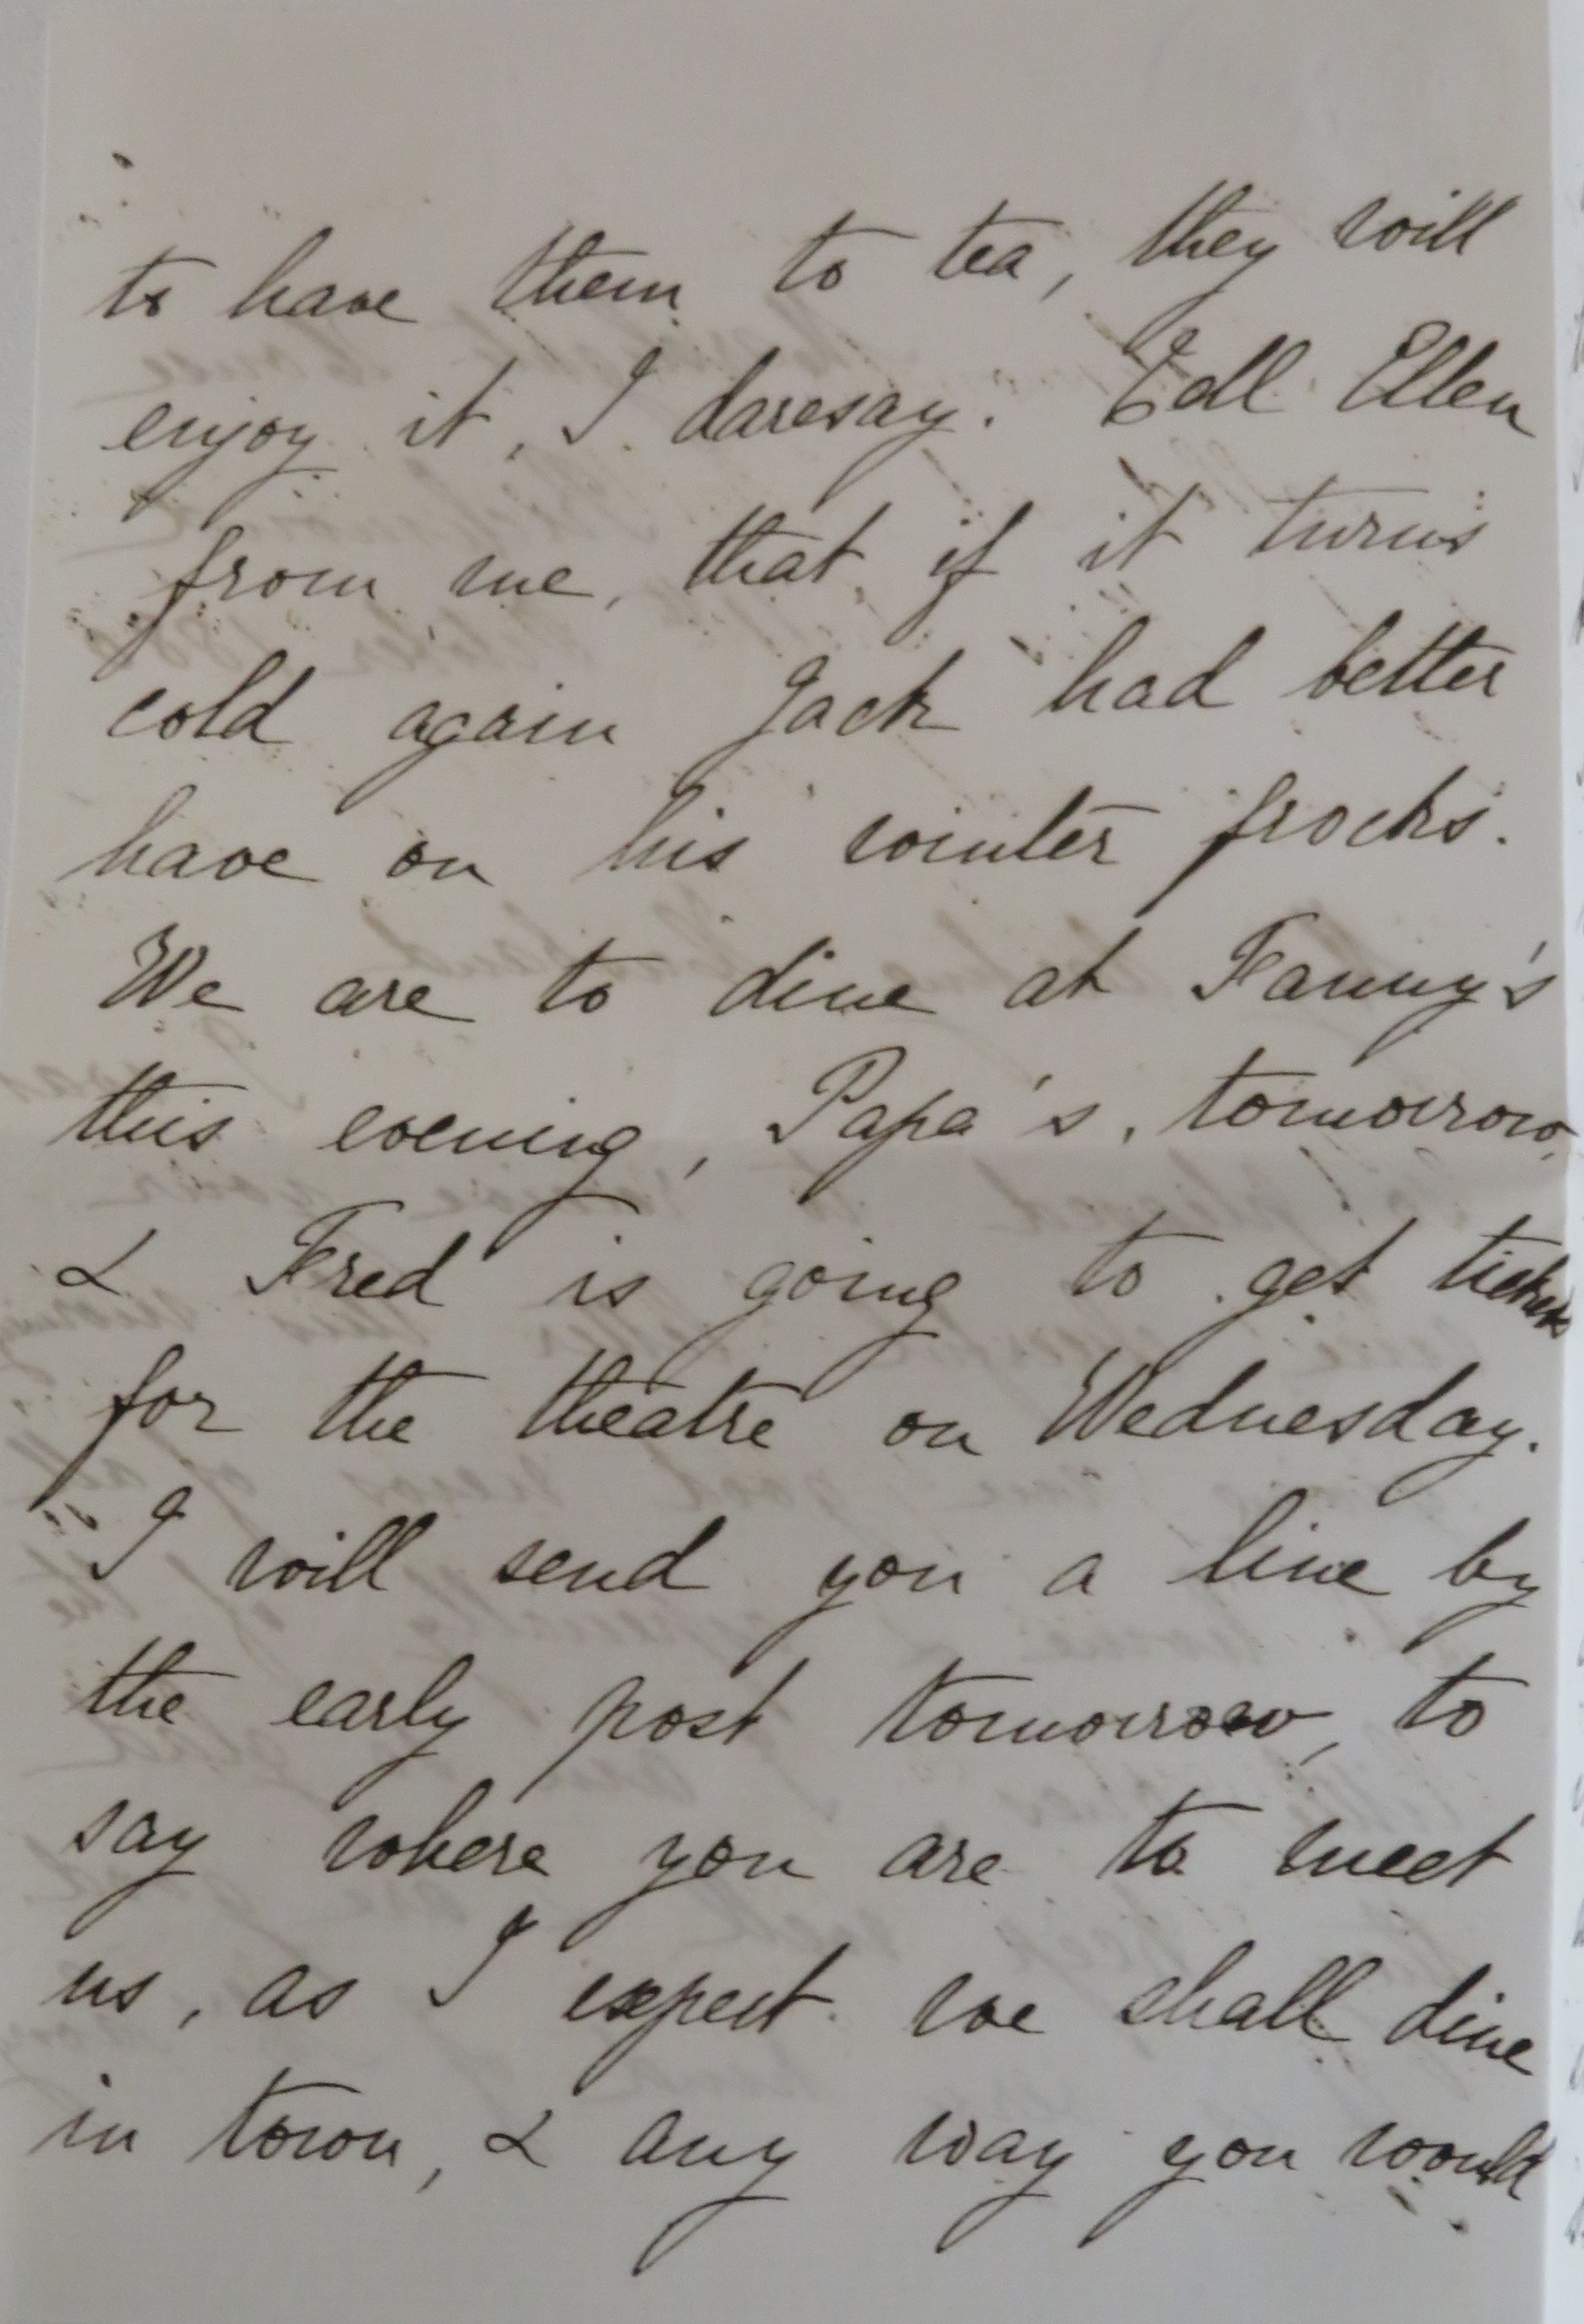 to have them to tea, they will
enjoy it, I daresay. Tell Ellen
from me, that if it turns
cold again Jack had better
have on his winter frocks.
We are to dine at Fanny's
this evening, Papa's, tomorrow,
& Fred is going to get tickets
for the theatre on Wednesday.
I will send you a line by
the early post tomorrow, to
say where you are to meet
us, as I expect we shall dine
in town, & any way you would